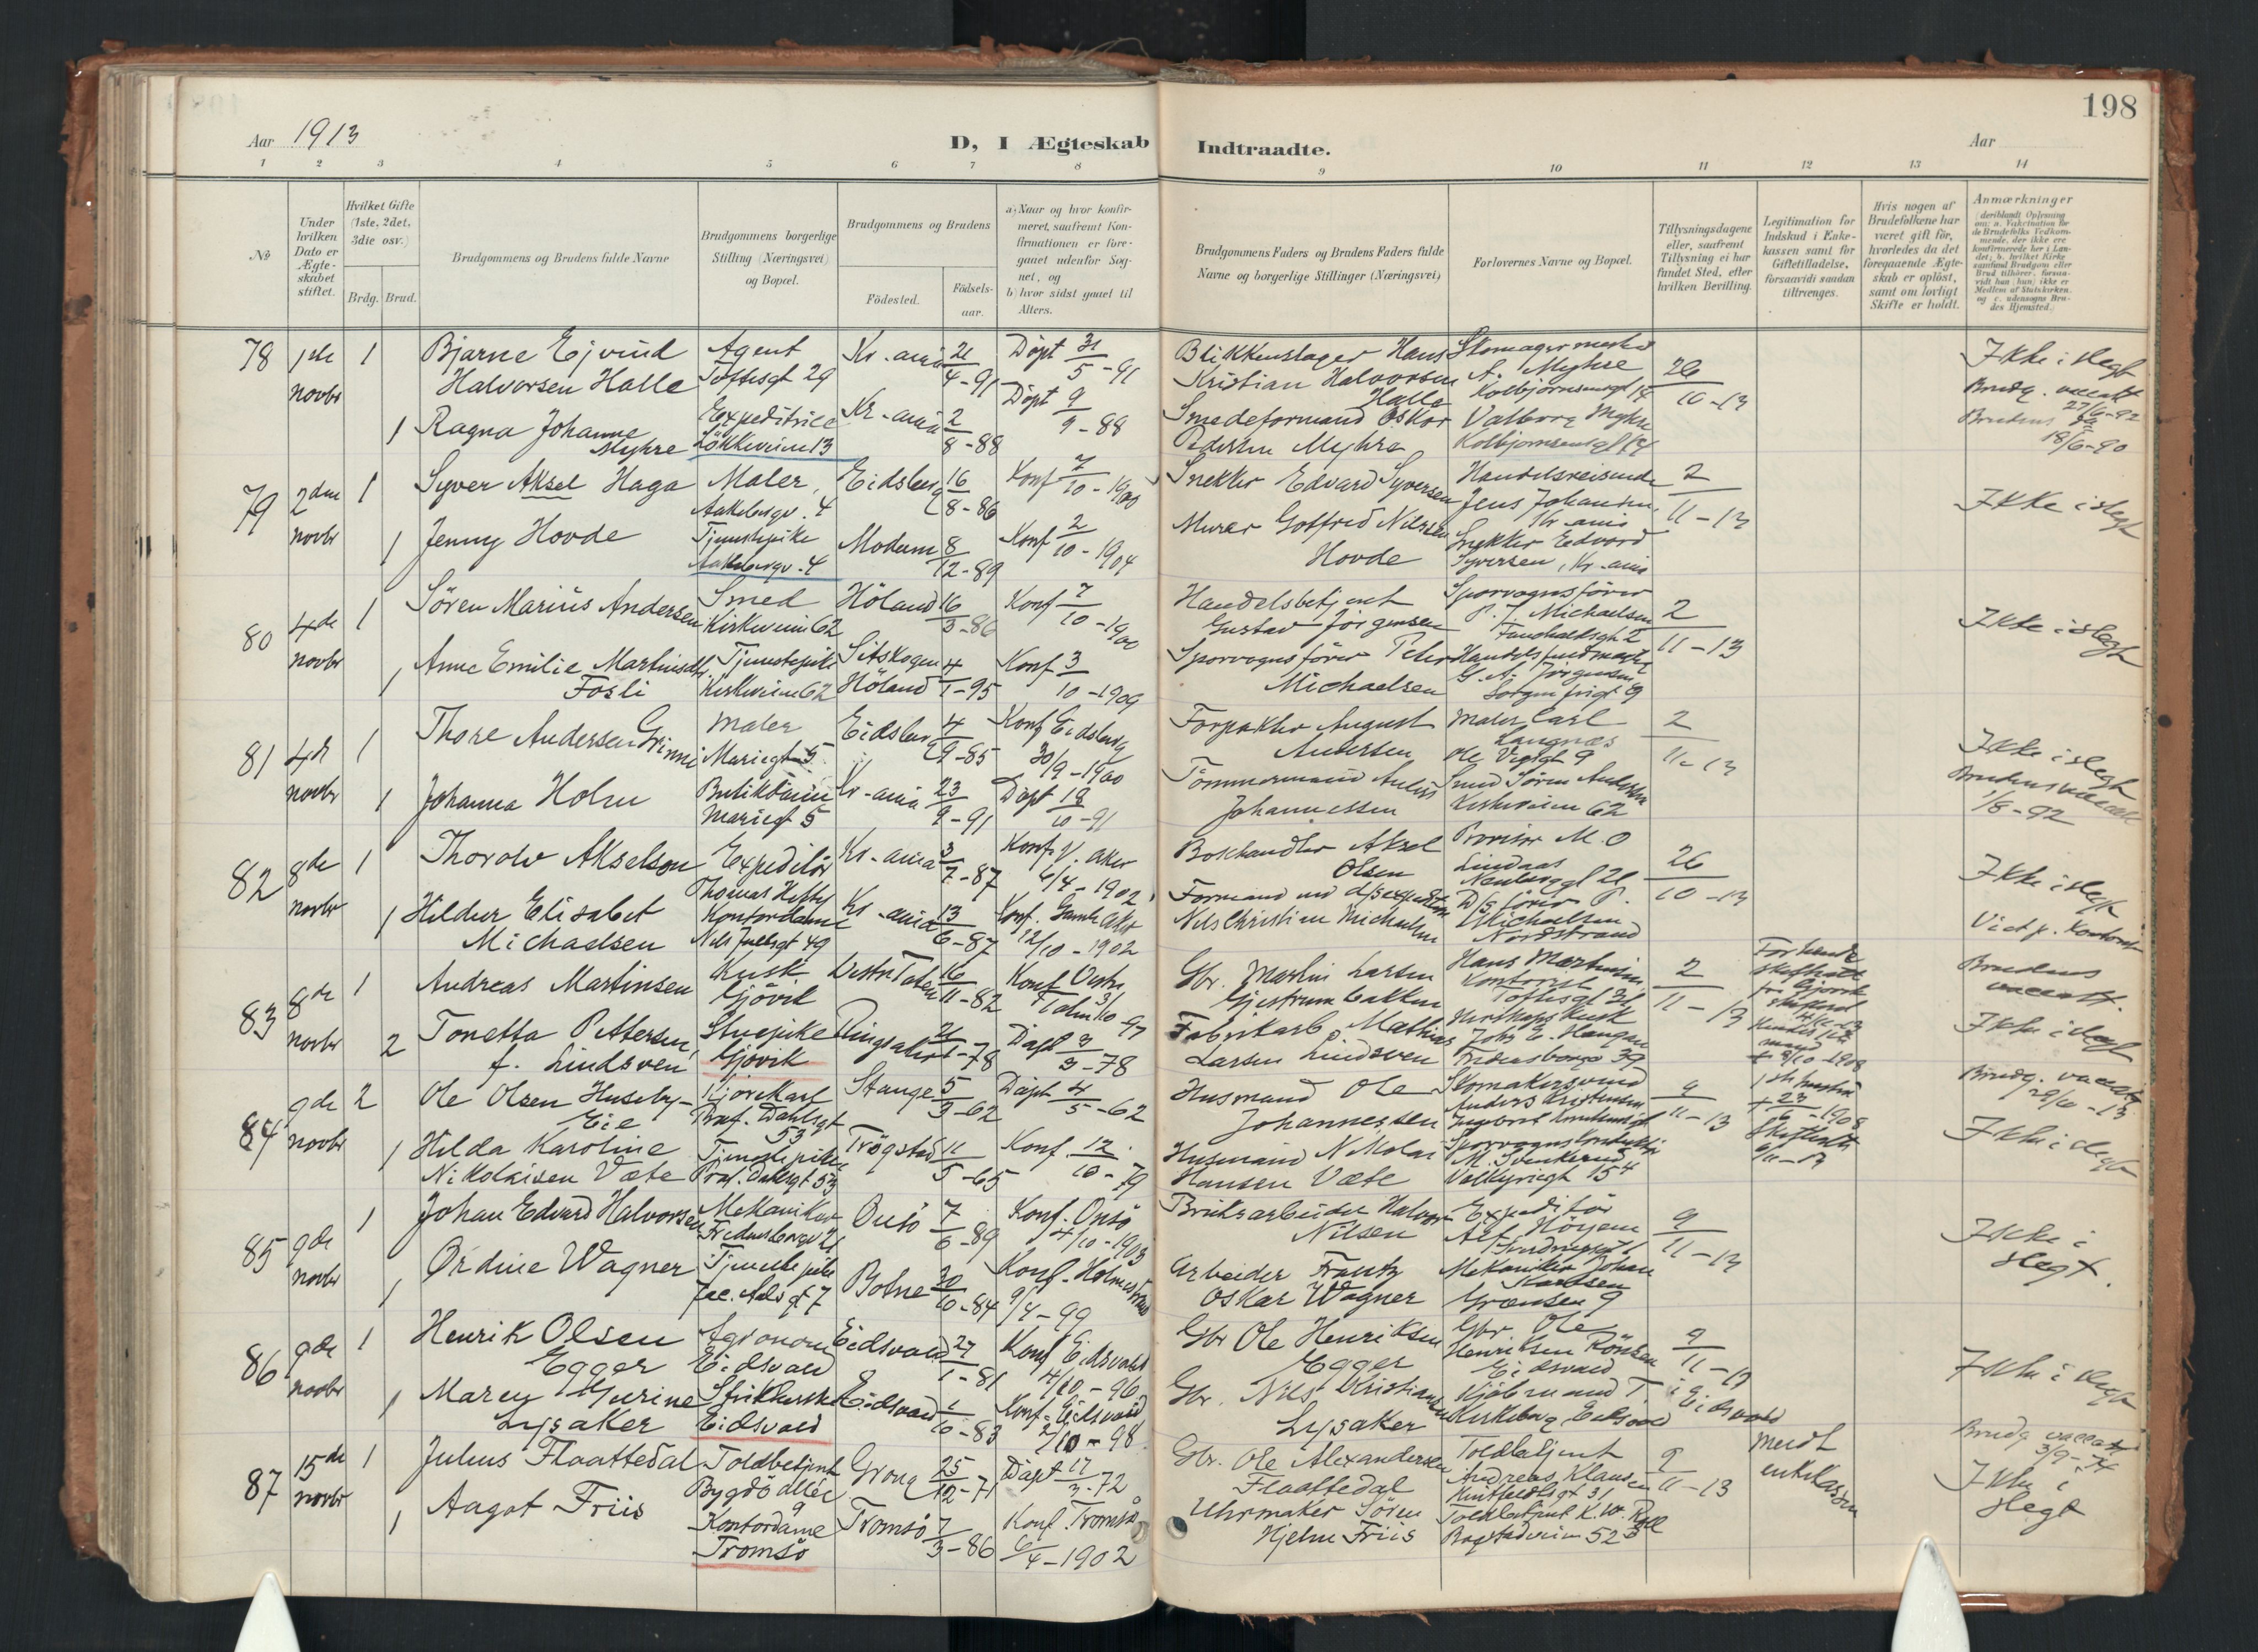 198
Aar 1913
D, I Ægteskab
Indtraadte.
Aar
1 2 3 4 5 6 7 8 9 10 11 12 13 14
No
Under hvilken Dato er Ægteskabet stiftet.
Hvilket Gifte (1ste, 2det, 3die osv.)
Brdg. Brud.
Brudgommens og Brudens fulde Navne
Brudgommens borgerlige Stilling (Næringsvei) og Bopæl.
Brudgommens og Brudens
Födested.
Födselsaar.
a) Naar og hvor konfirmeret, saafremt Konfirmationen er foregaaet udenfor Sognet, og
b) hvor sidst gaaet til Alters.
Brudgommens Faders og Brudens Faders fulde Navne og borgerlige Stillinger (Næringsvei)
Forlovernes Navne og Bopæl.
Tillysningsdagene eller, saafremt Tillysning ei har fundet Sted, efter hvilken Bevilling.
Legitimation for Indskud i Enkekassen samt for Giftetilladelse, forsaavidt saadan tiltrænges.
Hvis nogen af Brudefolkene har været gift för, hvorledes da det foregaaende Ægteskab er oplöst, samt om lovligt Skifte er holdt.
Anmærkninger
78 1ste novbr 1
Bjarne Ejvind Halvorsen Halle
Agent Toftesgt 29
Kr-ania 21/4-91
Döpt 31/5-91
Blikkenslager Hans Kristian Halvorsen Halle
Skomagermester A. Myhre
26/10-13
Ikke i slegt
1 Ragna Johanne Myhre
Expeditrice Lökkeveien 13
Kr-ania 2/8-88
Döpt 9/9-88
Smedeformand Oskar Pedersen Myhre
Valborg Myhre
18/6-90
79 2den novbr 1
Syver Aksel Haga
Maler Aakebergv. 4
Eidsberg 16/8-86
Konf 7/10-1900
Snekker Edvard Syversen
Handelsreisende Jens Johansen, Kr-ania
2/11-13
Ikke i slegt
1 Jenny Hovde
Tjenestepike Aakebergv. 4
Modum 8/12-89
Konf 2/10-1904
Murer Gotfred Nilsen Hovde
Snekker Edvard Syversen, Kr-ania
80 4de novbr 1
Sören Marius Andersen
Smed Kirkeveien 62
Höland 16/3-86
Konf 7/10-1900
Handelsbetjent Gustav Jörgensen
Sporvognsförer P. J. Michaelsen
2/11-13
Ikke i slegt
1 Anne Emilie Martinsdtr. Fosli
Tjenestepike Kirkeveien 62
Sitskogen Höland 4/1-95
Konf 3/10-1909
Sporvognsförer Peter Michaelsen
G. A. Jörgensen Sorgenfrigt 9
81 4de novbr 1
Thore Andersen Grinni
Maler Mariegt 5
Eidsberg 4/9-85
Konf Eidsberg 30/9-1900
Forpakter August Andersen
Maler Carl Langnæs Ole Vigsgt 9
2/11-13
Ikke i slegt
1 Johanna Holm
Butikdame Mariegt 5
Kr-ania 23/9-91
Döpt 18/10-91
Tömmermand Anders Johannessen
Smed Sören Andersen Kirkeveien 62
1/8-92
82 8de novbr 1
Thorolv Akselson
Expeditör Thomas Heftyes
Kr-ania 3/7-87
Konf V. Aker 6/4-1902
Boghandler Aksel Olsen
Provisor M. O Lindaas
26/10-13
Ikke i slegt
1 Hildur Elisabet Michaelsen
Kontordame Nils Juelsgt 49
Kr-ania 13/6-87
Konf. Gamle Aker 12/10-1902
Formand ved d/s expedition Nils Christian Michaelsen
D/s förer P. Michaelsen Nordstrand
83 8de novbr 1
Andreas Martinsen
Kusk Gjövik
Vestre Toten 16/11-82
Konf Vestre Toten 3/10-97
Gbr. Martin Larsen Gjestrumbakken
Hans Martinsen Kontorist Toftesgt 31
2/11-13
Brudens
2 Tonetta Pettersen, f. Lindsveen
Stuepike Gjövik
Ringsaker 21/1-78
Döpt 3/3-78
Fabrikarb. Mathias Larsen Lindsveen
Ikke i slegt
84 9de novbr 2
Ole Olsen Huseby-Eie
Kjörekarl Prof. Dahlsgt 53
Stange 5/3-62
Döpt 4/5-62
Husmand Ole Johannessen
Anders Kristensen
9/11-13
1 Hilda Karoline Nikolaisen Væte
Tjenestepike Prof. Dahlsgt 53
Trögstad 11/5-65
Konf. 12/10-79
Husmand Nikolai Hansen Væte
M. Svenkerud Valkyriegt 15
Ikke i slegt
85 9de novbr 1
Johan Edvard Halvorsen
Mekaniker Fredensborgv 21
Onsö 7/6-89
Konf. Onsö 4/10-1903
Bruksarbeider Halvor Nilsen
Expeditör
9/11-13
Ikke i slegt.
1 Ordine Wagner
Tjenestepike Jac. Aals gt 7
Botne 30/10-84
Konf. Holmestrand 9/4-99
Arbeider Frantz Oskar Wagner
Mekaniker Johan Karlsen Grænsen 9
86 9de novbr 1
Henrik Olsen Egger
Agronom Eidsvold
Eidsvold 27/1-81
Konf Eidsvold 4/10-96
Gbr Ole Henriksen Egger
Gbr. Ole Henriksen Rönsen Eidsvold
9/11-13 i Eidsvold
Ikke i slegt
1 Maren Gurine Lysaker
Eidsvold
Eidsvold 1/10-83
Konf. Eidsvold 2/10-98
Gbr. Nils Kristiansen Lysaker
Kjöbmand T. Kirkeborg Eidsvold
87 15de novbr 1
Julius Flaattedal
Toldbetjent Bygdö allé 9
Grong 25/12-71
Döpt 17/3-72
Gbr. Ole Alexandersen Flaattedal
Toldbetjent Andreas Klausen
9/11-13
meldt enkekassen
1 Aagot Friis
Kontordame Tromsö
Tromsö 7/3-86
Konf. Tromsö 6/4-1902
Uhrmaker Sören Hjelm Friis
Toldbetjent K. W. Roll Bogstadveien 52
Ikke i slegt